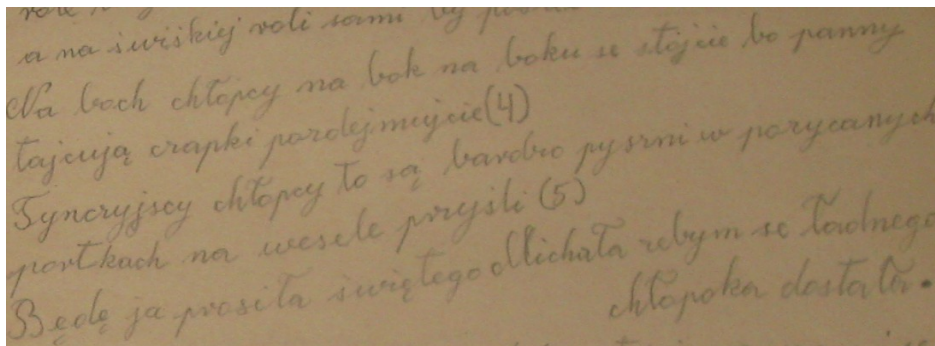 a na świśkiej roli sami by
Na bach chłopcy na bok na boku se stójcie bo panny
tajcują czapki pozdejmujcie (4)
Tyncryjscy chłopcy to są bardzo pyszni w pozycanych
portkach na wesele przyśli (5)
Będę ja prosiła świętego Michała zebym se ładnego
chłopoka dostała.